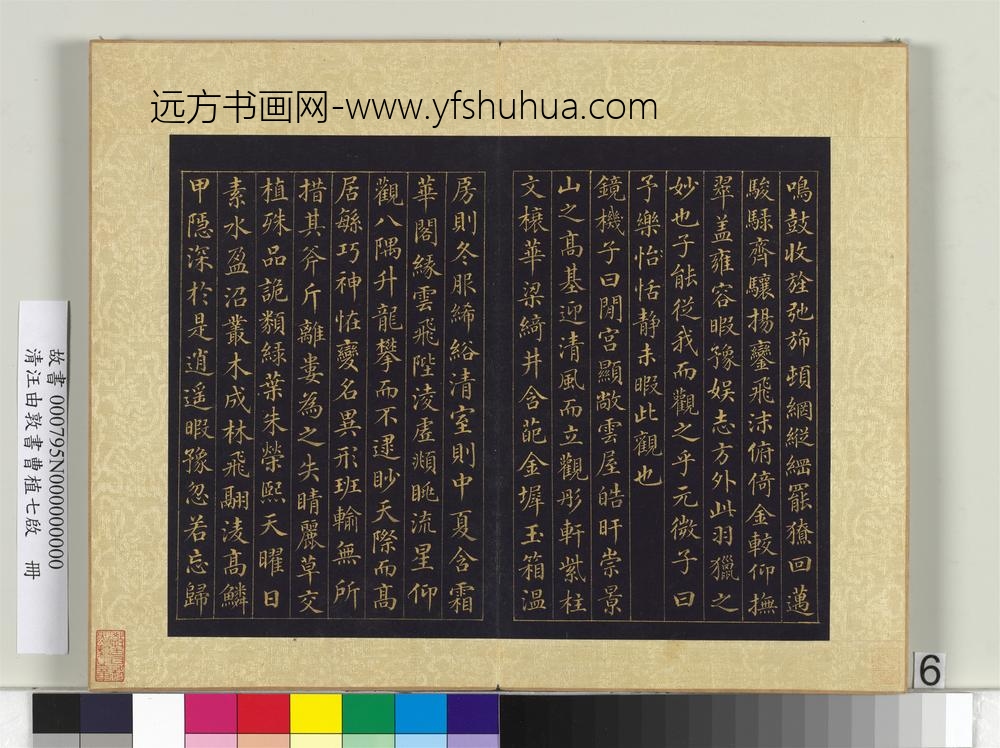 远方书画网-www.yfshuhua.com
鳴鼓收旌弛斾頓網縱綱罷獠回邁
駿騄齊驤揚鑾飛沫俯倚金較仰撫
翠盖雍容暇豫娱志方外此羽獵之
妙也子能從我而觀之乎元微子曰
予樂怡恬静未暇此觀也
鏡機子曰閒宫顯敞雲屋皓旰崇景
山之高基迎清風而立觀彤軒紫柱
文榱華梁綺井含葩金墀玉箱温
房則冬服絺綌清室則中夏含霜
華閣緣雲飛陛淩虚頫眺流星仰
觀八隅升龍攀而不逮眇天際而高
居緐巧神恠變名異形班輸無所
措其斧斤離婁為之失睛麗草交
植殊品詭類緑葉朱榮熙天曜日
素水盈沼叢木成林飛翮淩高鱗
甲隱深於是逍遥暇豫忽若忘歸
故書 000795N000000000
清汪由敦書曹植七啟 冊
6